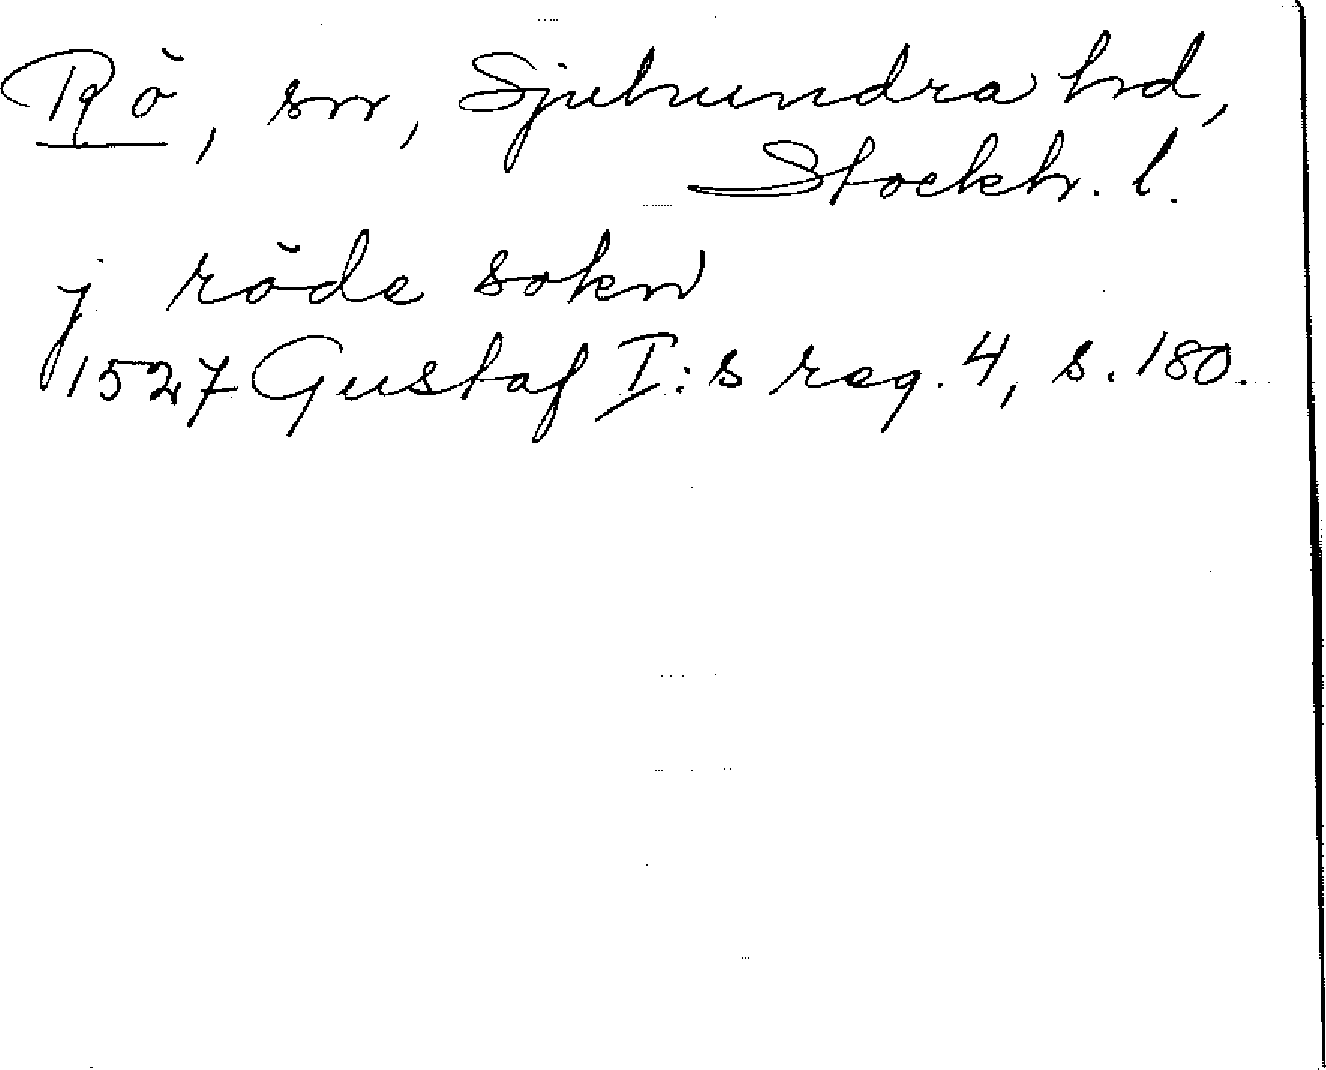 Rö, sn, Sjuhundra hd,
Stockh. l.
j röde sokn
1527 Gustaf I:s reg. 4, s. 180.